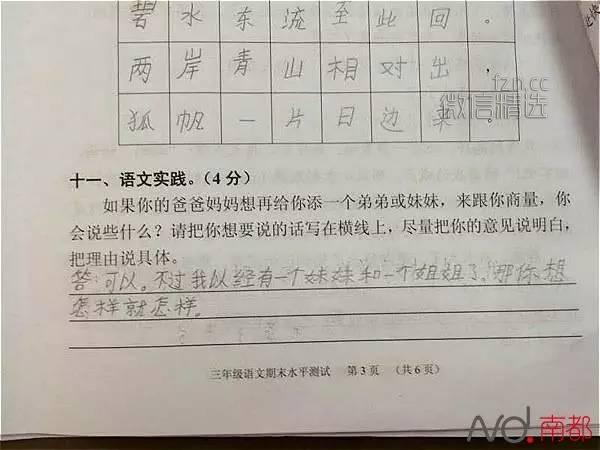 碧水东流至此回。
两岸青山相对出，
狐帆一片日边来。
fzn.cc
微信精选
十一、语文实践。（4分）
如果你的爸爸妈妈想再给你添一个弟弟或妹妹，来跟你商量，你
会说些什么？请把你想要说的话写在横线上，尽量把你的意见说明白，
把理由说具体。
答:可以。不过我以经有一个妹妹和一个姐姐了,那你想
怎样就怎样。
三年级语文期末水平测试 第3页 （共6页）
Nd.南都